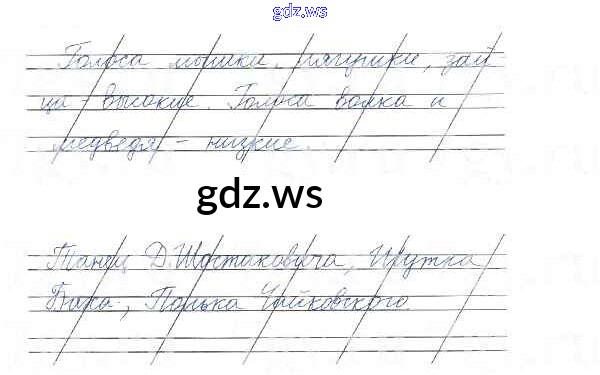 gdz.ws
Голоса мышки, лягушки, зай-
ца - высокие. Голоса волка и
медведя - низкие.
gdz.ws
Танец Д. Шостаковича, Шутка
Баха, Полька Чайковского